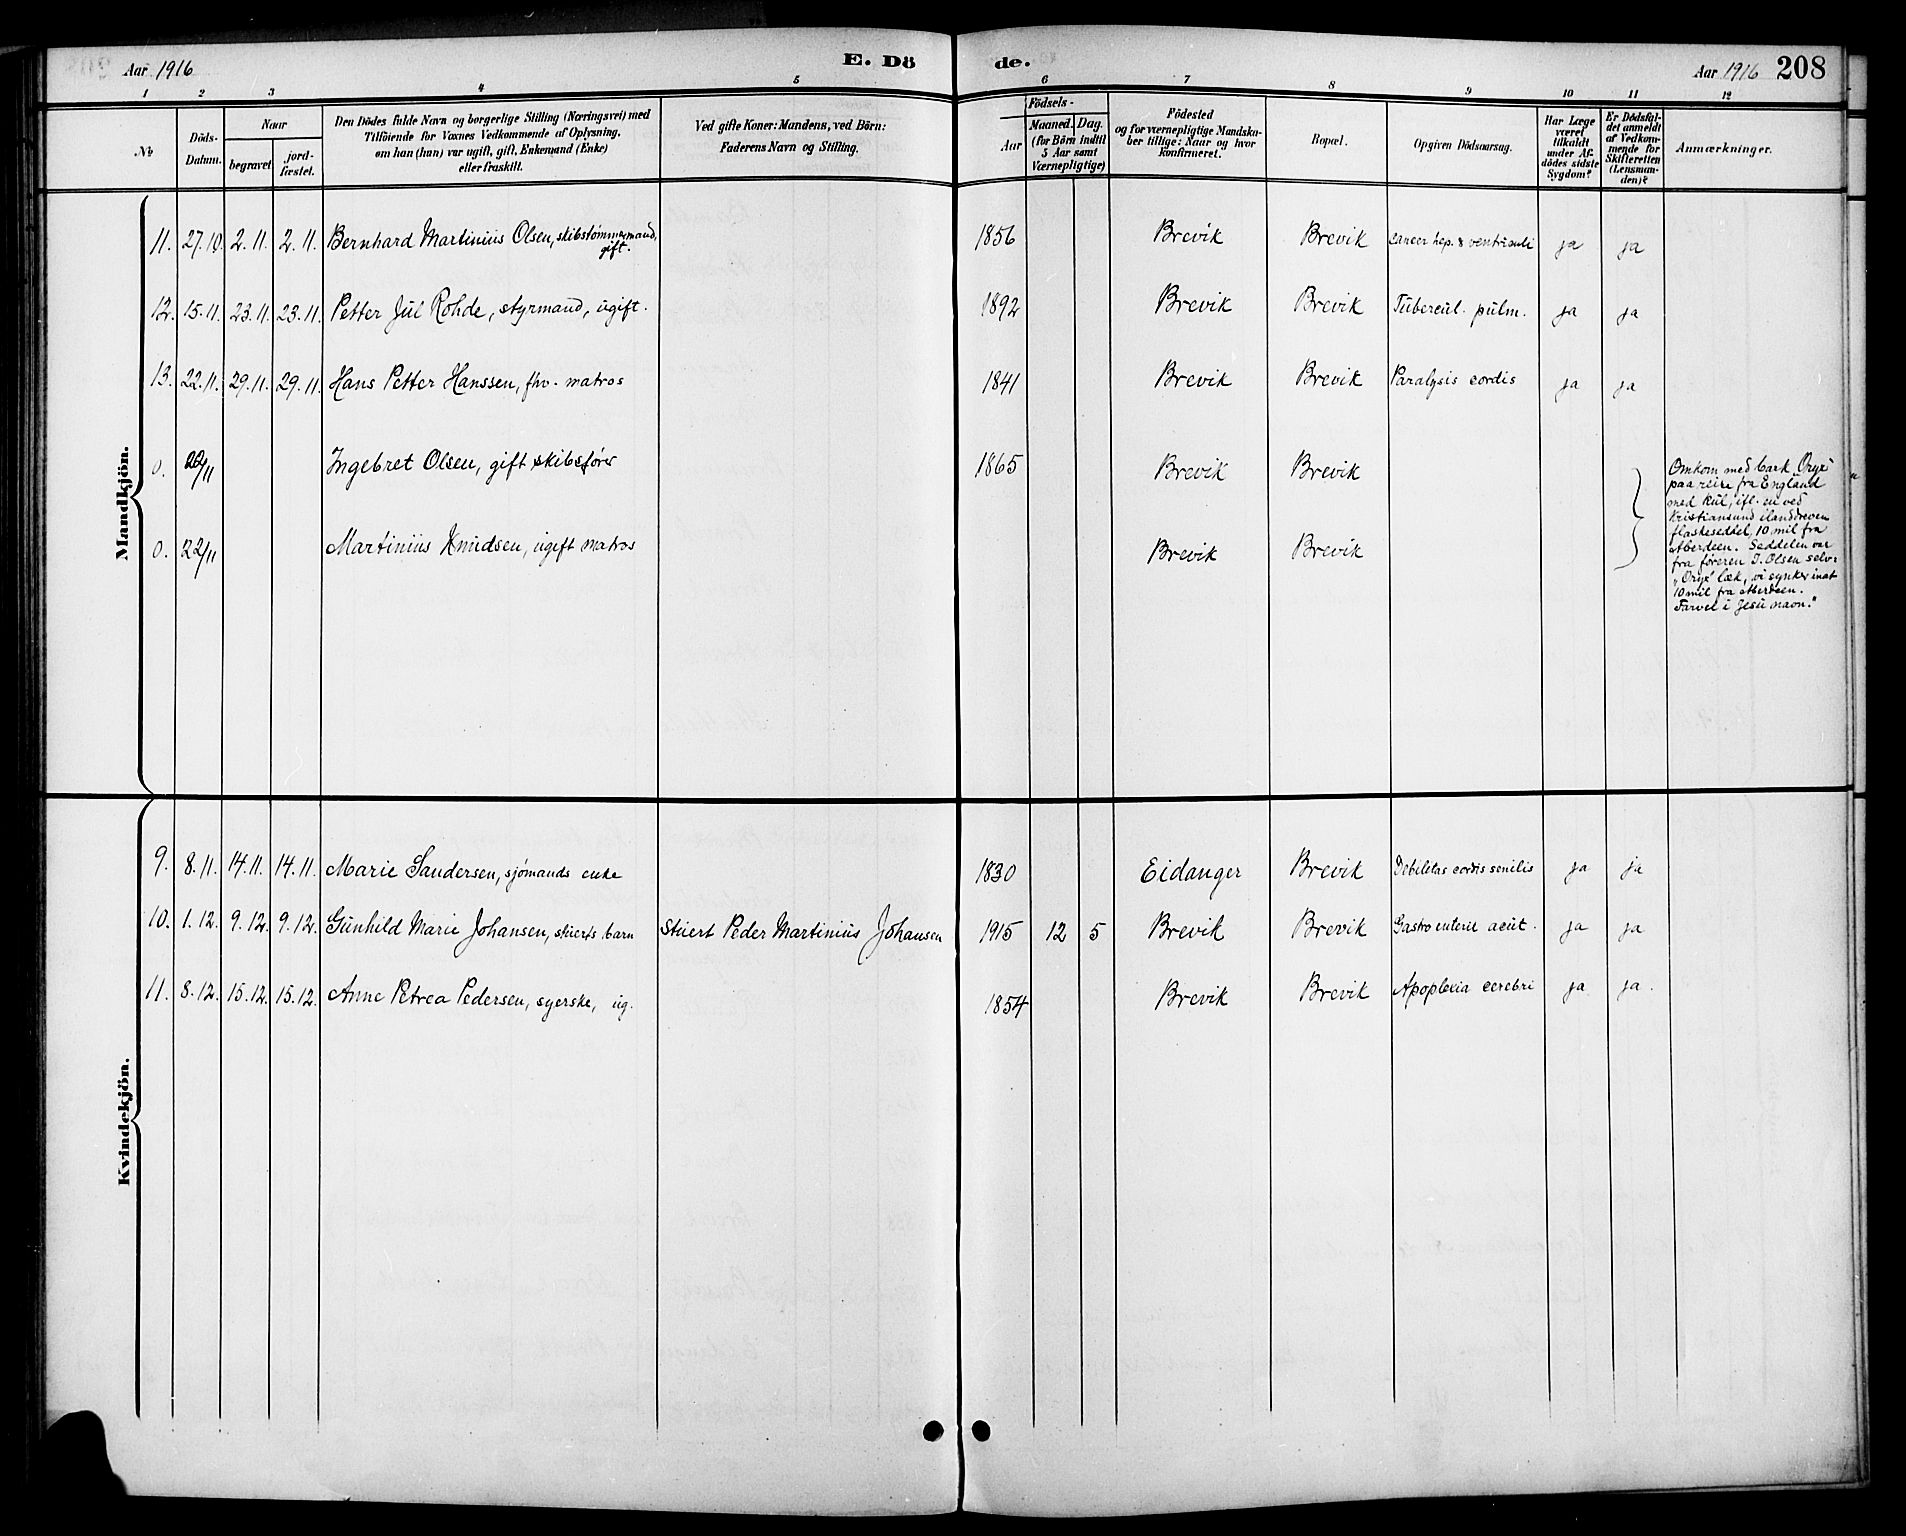 Aar 1916
E. Dö
de.
Aar 1916
208
1 2 3 4 5 6 7 8 9 10 11 12
No
Döds-Datum.
Naar
begravet
jord-fæstet.
Den Dödes fulde Navn og borgerlige Stilling (Næringsvei) med
Tilföiende for Voxnes Vedkommende af Oplysning,
om han (hun) var ugift, gift, Enkemand (Enke)
eller fraskilt.
Ved gifte Koner: Mandens, ved Börn:
Faderens Navn og Stilling.
Födsels-
Aar
Maaned. Dag.
(for Börn indtil
5 Aar samt
Værnepligtige)
Födested
og for værnepligtige Mandska-
ber tillige: Naar og hvor
konfirmeret.
Bopæl.
Opgiven Dödsaarsag.
Har Læge
været
tilkaldt
under Af-
dödes sidste
Sygdom?
Er Dödsfal-
det anmeldt
af Vedkom-
mende for
Skifteretten
(Lensman-
den)?
Anmærkninger.
Mandkjön.
11. 27.10. 2.11. 2.11. Bernhard Martinius Olsen, skibstømmermand, gift. 1856 Brevik Brevik cancer hep. & ventriculi ja ja
12. 15.11. 23.11. 23.11. Petter Jul Rohde, styrmand, ugift. 1892 Brevik Brevik Tubercul. pulm. ja ja
13. 22.11. 29.11. 29.11. Hans Petter Hanssen, fhv. matros 1841 Brevik Brevik Paralysis cordis ja ja
0. 22/11 Ingebret Olsen, gift skibsfører 1865 Brevik Brevik
0. 22/11 Martinius Knudsen, ugift matros Brevik Brevik
Omkom med bark "Oryx"
paa reise fra England
med kul, ifl. en ved
Kristiansund ilanddreven
flaskeseddel, 10 mil fra
Aberdeen. Seddelen var
fra føreren I. Olsen selv:
"Oryx" læk, vi synker inat
10 mil fra Aberdeen.
Farvel i Jesu navn."
Kvindekjön.
9. 8.11. 14.11. 14.11. Marie Sandersen, sjømands enke 1830 Eidanger Brevik Debilitas cordis senilis ja ja
10. 1.12. 9.12. 9.12. Gunhild Marie Johansen, stuerts barn Stuert Peder Martinius Johansen 1915 12 5 Brevik Brevik Gastro enterit acut. ja ja
11. 8.12. 15.12. 15.12. Anne Petrea Pedersen, syerske, ug. 1854 Brevik Brevik Apoplexia cerebri ja ja.